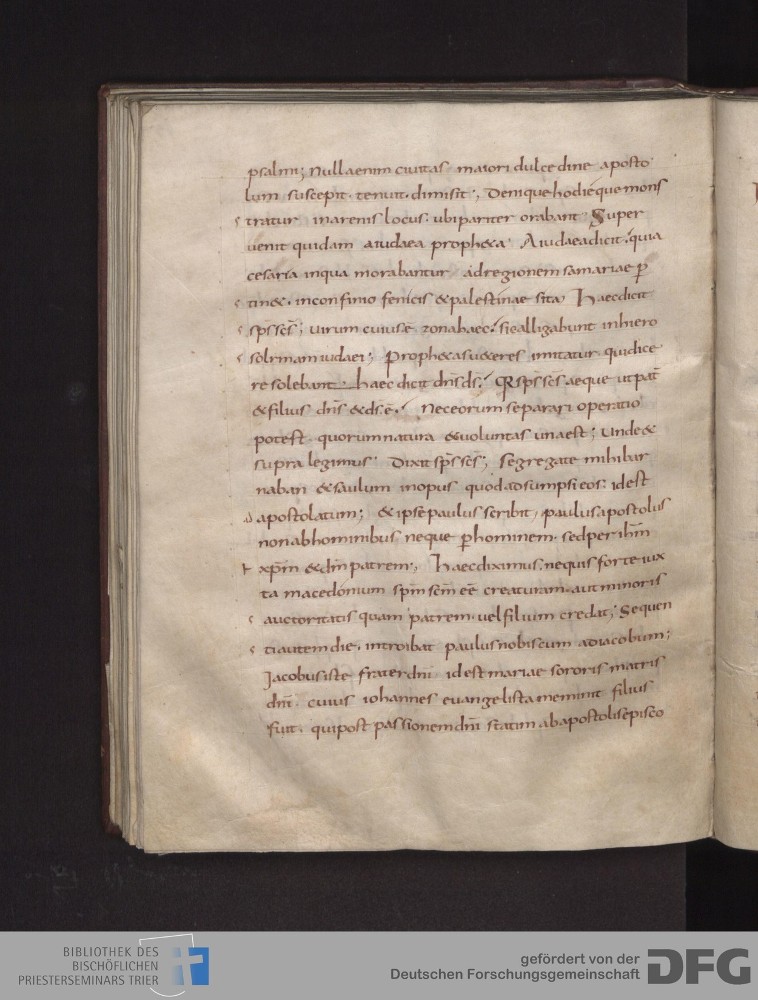 psalmi; Nulla enim civitas maiori dulcedine aposto
lum suscepit. tenuit. dimisit; Denique hodieque mons
tratur in arenis locus. ubi pariter orabant. Super
venit quidam a iudaea propheta. A iudaea dicit. quia
cesaria in qua morabantur ad regionem samariae ꝑ
tinet. in confinio fenicis & palestinae sita. Haec dicit
sp̅s sc̅s; virum cuius e̅ zona haec. sic alligabunt in hiero
solimam iudaei; Prophetas veteres imitatur. qui dice
re solebant. haec dicit dn̅s ds̅. Q sp̅s sc̅s aeque ut pat̅
& filius dn̅s & ds̅ e̅. Nec eorum separari operatio
potest. quorum natura & voluntas una est; Unde &
supra legimus. Dixit sp̅s sc̅s; Segregate mihi bar
naban & saulum in opus quod adsumpsi eos. id est
apostolatum; & ipse paulus scribit. paulus apostolus
non ab hominibus neque ꝑ hominem. sed per ih̅m
xp̅m & dm̅ patrem; Haec diximus. ne quis forte iux
ta macedonium sp̅m sc̅m e̅e creaturam. aut minoris
auctoritatis quam patrem. vel filium credat; Sequen
ti autem die. introibat paulus nobiscum ad iacobum;
Iacobus iste frater dn̅i id est mariae sororis matris
dn̅i. cuius iohannes evangelista meminit filius
fuit. qui post passionem dn̅i statim ab apostolis episco
BIBLIOTHEK DES
BISCHÖFLICHEN
PRIESTERSEMINARS TRIER
gefördert von der
Deutschen Forschungsgemeinschaft
DFG